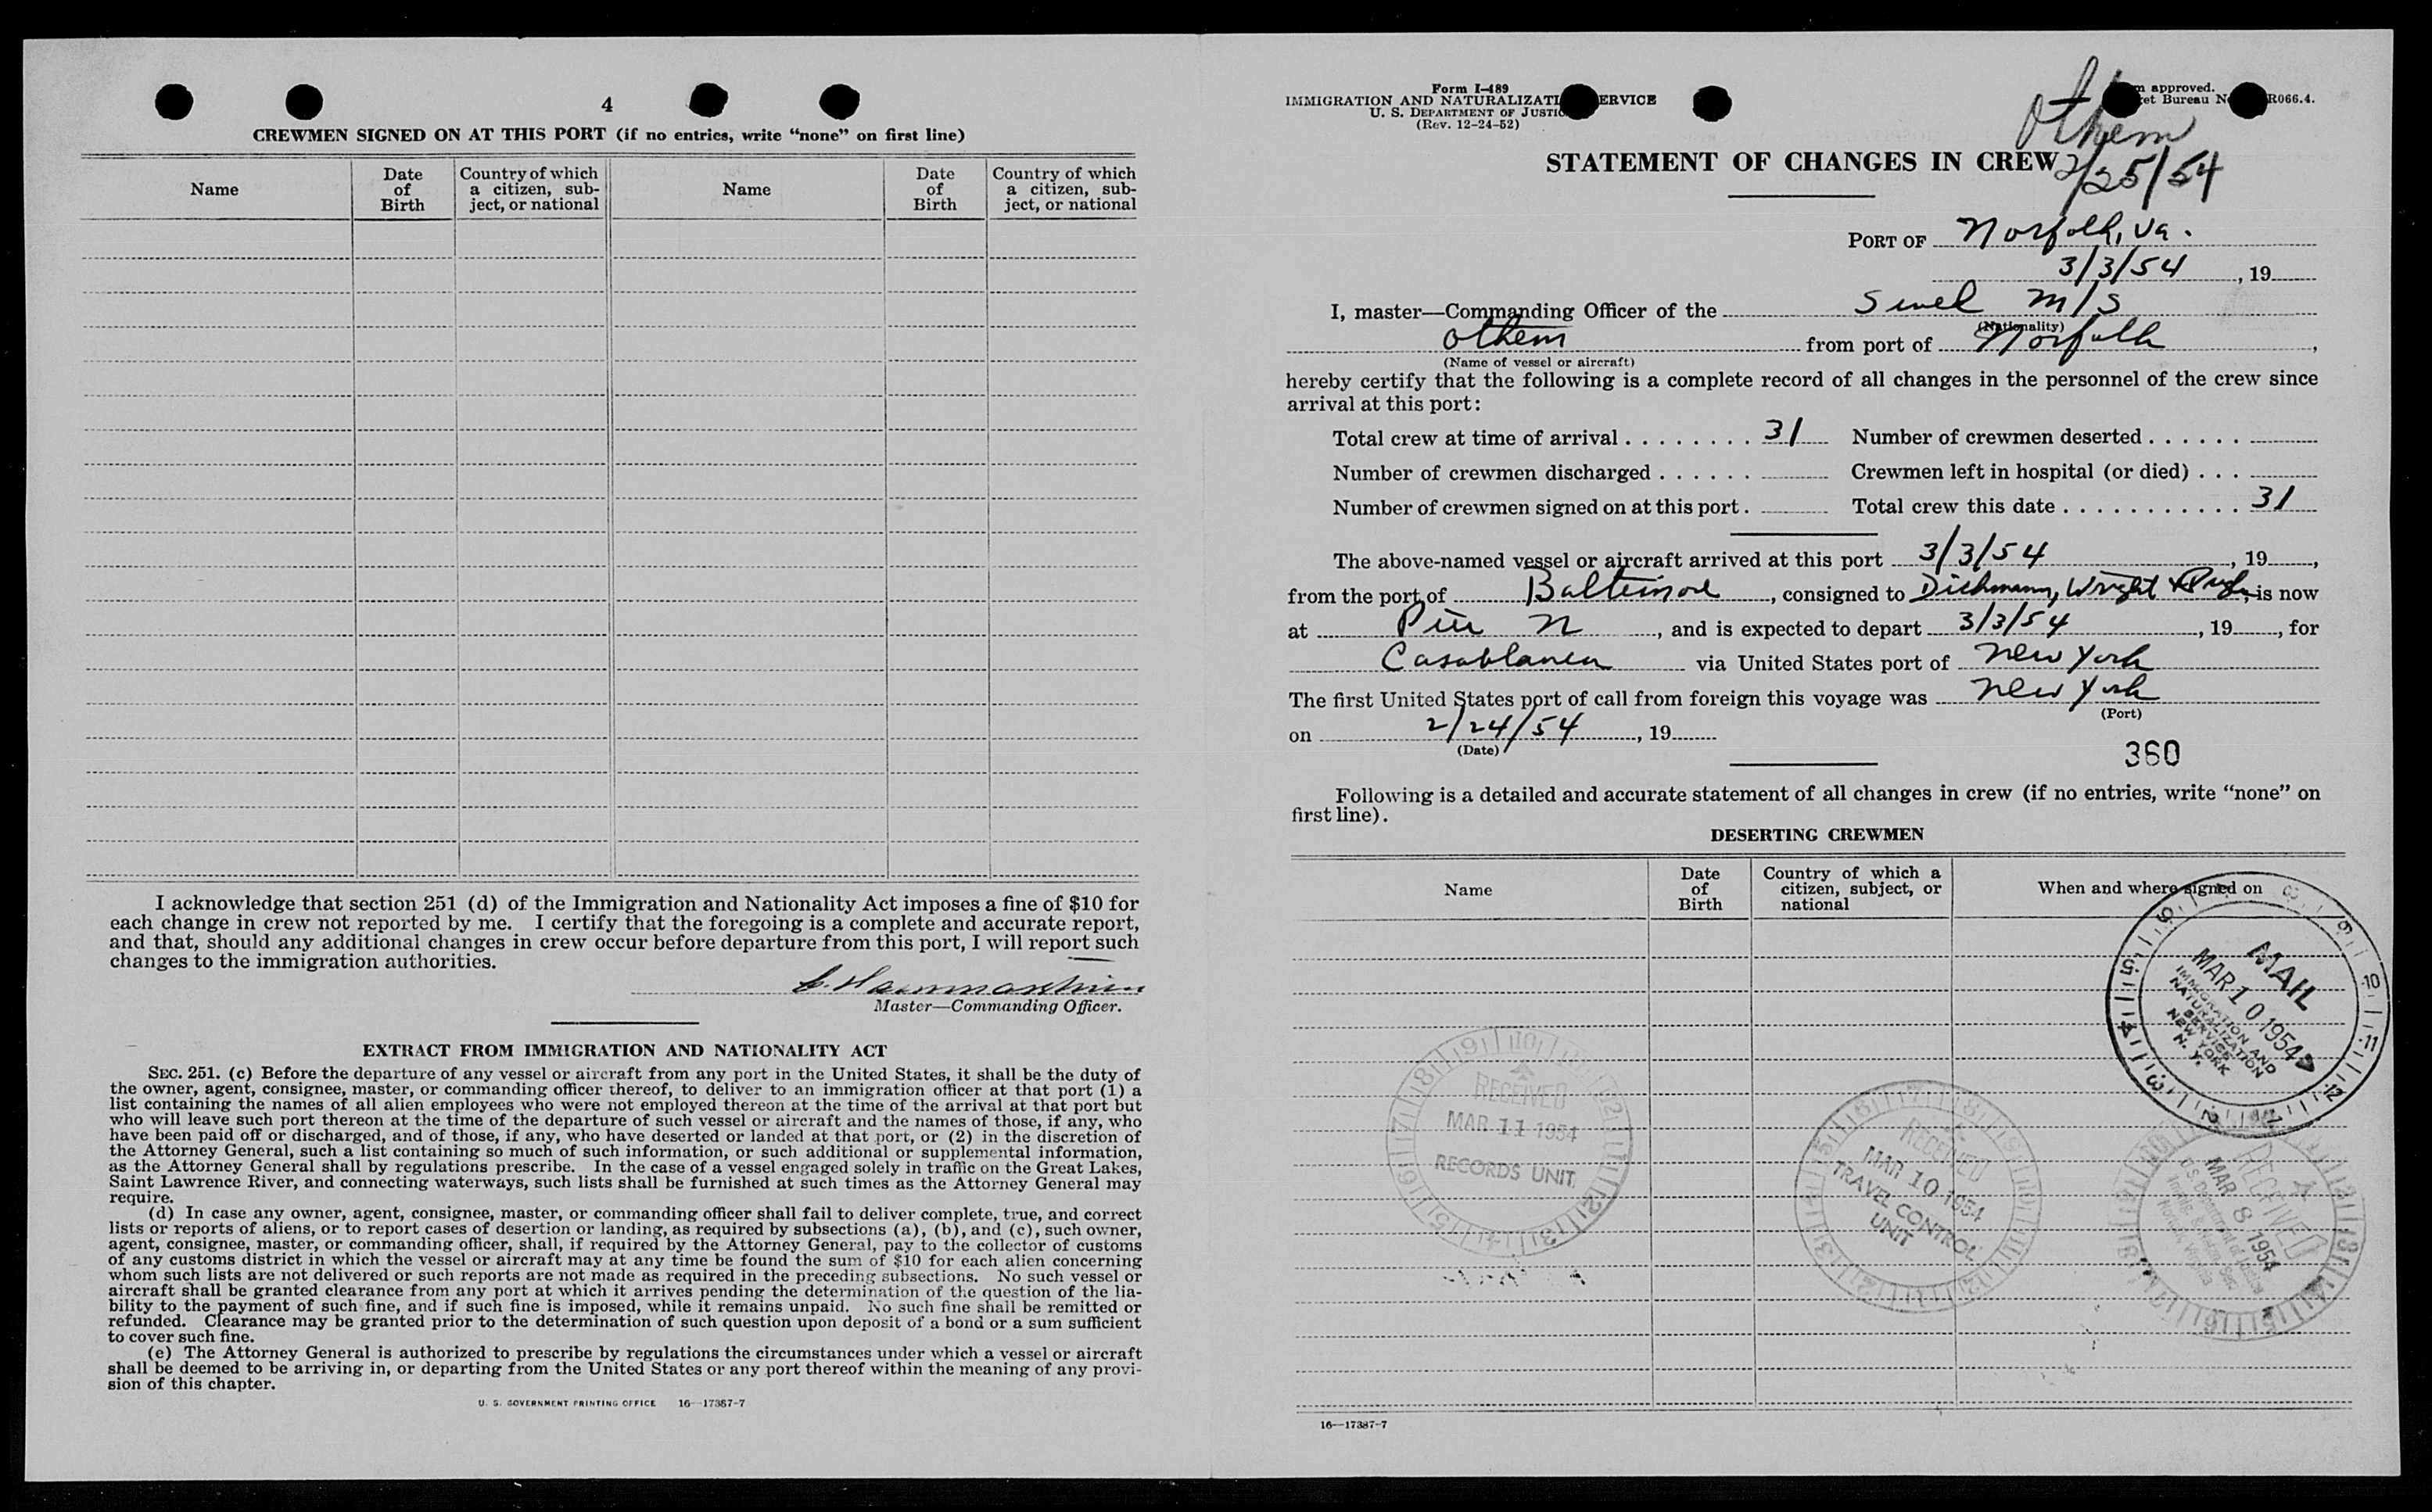 4
CREWMEN SIGNED ON AT THIS PORT (if no entries, write “none” on first line)
Name
Date of Birth
Country of which a citizen, subject, or national
Name
Date of Birth
Country of which a citizen, subject, or national
I acknowledge that section 251 (d) of the Immigration and Nationality Act imposes a fine of $10 for
each change in crew not reported by me. I certify that the foregoing is a complete and accurate report,
and that, should any additional changes in crew occur before departure from this port, I will report such
changes to the immigration authorities.
Master—Commanding Officer.
EXTRACT FROM IMMIGRATION AND NATIONALITY ACT
SEC. 251. (c) Before the departure of any vessel or aircraft from any port in the United States, it shall be the duty of
the owner, agent, consignee, master, or commanding officer thereof, to deliver to an immigration officer at that port (1) a
list containing the names of all alien employees who were not employed thereon at the time of the arrival at that port but
who will leave such port thereon at the time of the departure of such vessel or aircraft and the names of those, if any, who
have been paid off or discharged, and of those, if any, who have deserted or landed at that port, or (2) in the discretion of
the Attorney General, such a list containing so much of such information, or such additional or supplemental information,
as the Attorney General shall by regulations prescribe. In the case of a vessel engaged solely in traffic on the Great Lakes,
Saint Lawrence River, and connecting waterways, such lists shall be furnished at such times as the Attorney General may
require.
(d) In case any owner, agent, consignee, master, or commanding officer shall fail to deliver complete, true, and correct
lists or reports of aliens, or to report cases of desertion or landing, as required by subsections (a), (b), and (c), such owner,
agent, consignee, master, or commanding officer, shall, if required by the Attorney General, pay to the collector of customs
of any customs district in which the vessel or aircraft may at any time be found the sum of $10 for each alien concerning
whom such lists are not delivered or such reports are not made as required in the preceding subsections. No such vessel or
aircraft shall be granted clearance from any port at which it arrives pending the determination of the question of the lia-
bility to the payment of such fine, and if such fine is imposed, while it remains unpaid. No such fine shall be remitted or
refunded. Clearance may be granted prior to the determination of such question upon deposit of a bond or a sum sufficient
to cover such fine.
(e) The Attorney General is authorized to prescribe by regulations the circumstances under which a vessel or aircraft
shall be deemed to be arriving in, or departing from the United States or any port thereof within the meaning of any provi-
sion of this chapter.
U. S. GOVERNMENT PRINTING OFFICE 16—17387-7
Form I-489
IMMIGRATION AND NATURALIZATI ERVICE
U. S. DEPARTMENT OF JUSTIC
(Rev. 12-24-52)
approved.
et Bureau N R066.4.
Othem
2/25/54
STATEMENT OF CHANGES IN CREW
PORT OF Norfolk, Va.
3/3/54, 19
I, master—Commanding Officer of the M/S
(Nationality)
Othem from port of Norfolk,
(Name of vessel or aircraft)
hereby certify that the following is a complete record of all changes in the personnel of the crew since
arrival at this port:
Total crew at time of arrival 31 Number of crewmen deserted
Number of crewmen discharged Crewmen left in hospital (or died)
Number of crewmen signed on at this port. Total crew this date 31
The above-named vessel or aircraft arrived at this port 3/3/54, 19,
from the port of Baltimore, consigned to Dichmann, Wright & Pugh, is now
at Pier N, and is expected to depart 3/3/54, 19, for
Casablanca via United States port of New York
The first United States port of call from foreign this voyage was New York
(Port)
on 2/24/54, 19
(Date)
360
Following is a detailed and accurate statement of all changes in crew (if no entries, write “none” on
first line).
DESERTING CREWMEN
Name
Date of Birth
Country of which a citizen, subject, or national
When and where signed on
MAIL
MAR 10 1954
IMMIGRATION AND
NATURALIZATION
SERVICE
NEW YORK
N. Y.
RECEIVED
MAR 11 1954
RECORDS UNIT
RECEIVED
MAR 10 1954
TRAVEL CONTROL
UNIT
RECEIVED
MAR 8 1954
16—17387-7